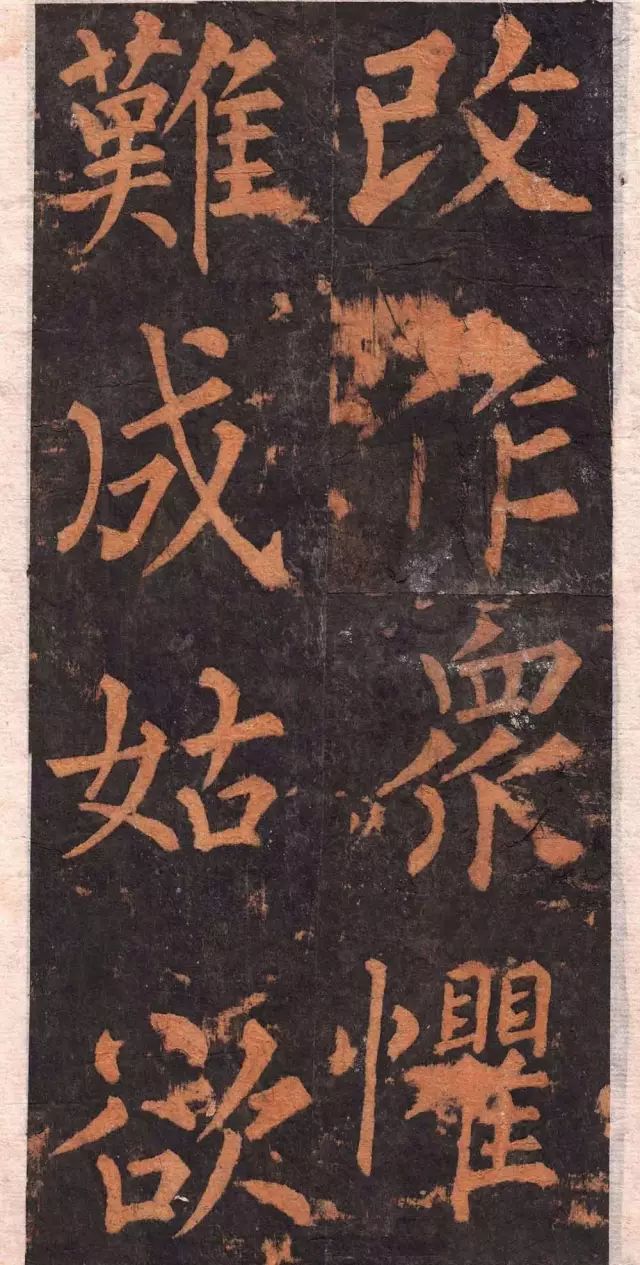 改作眾懼
難成姑欲